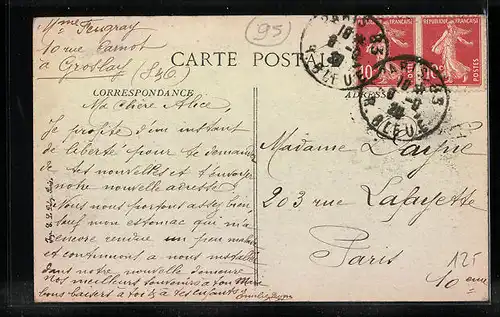 Mme Feugray
10 rue Carnot
à Groslay
(S&O)
95
CARTE POSTALE
CORRESPONDANCE
ADRESSE
Ma Chère Alice,
Je profite d'un instant
de liberté pour te demander
de tes nouvelles et t'envoyer
notre nouvelle adresse
Nous nous portons assez bien
sauf mon estomac qui m'a
encore rendue un peu malade
et continuons à nous installer
dans notre nouvelle demeure
nos meilleurs souvenirs à ton Mari
bons baisers à toi & à tes enfants
Madame
203 rue Lafayette
Paris
10eme
125
10c
POSTES
PARIS 83
R. BLEUE